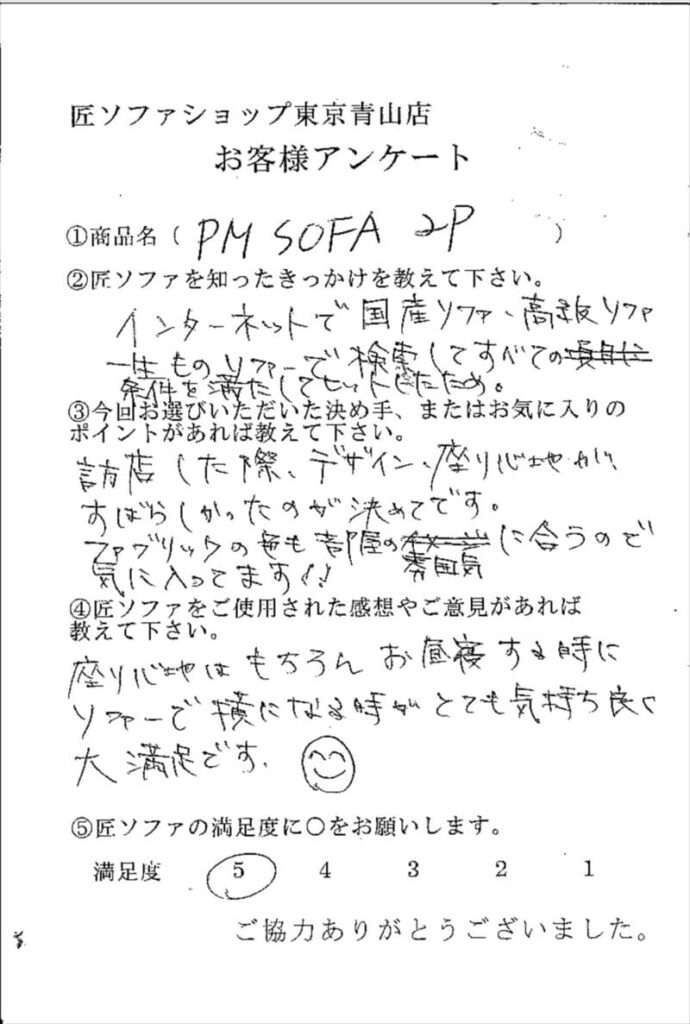 匠ソファショップ東京青山店
お客様アンケート
①商品名（ PM SOFA 2P ）
②匠ソファを知ったきっかけを教えて下さい。
インターネットで国産ソファ、高級ソファ
一生ものソファーで検索してすべての
条件を満たしてヒットしたため。
③今回お選びいただいた決め手、またはお気に入りの
ポイントがあれば教えて下さい。
訪店した際、デザイン、座り心地が、
すばらしかったのが決めてです。
ファブリックの色も部屋の雰囲気に合うので
気に入ってます!!
④匠ソファをご使用された感想やご意見があれば
教えて下さい。
座り心地はもちろんお昼寝する時に
ソファーで横になる時がとても気持ち良く
大満足です。
⑤匠ソファの満足度に○をお願いします。
満足度 5 4 3 2 1
ご協力ありがとうございました。